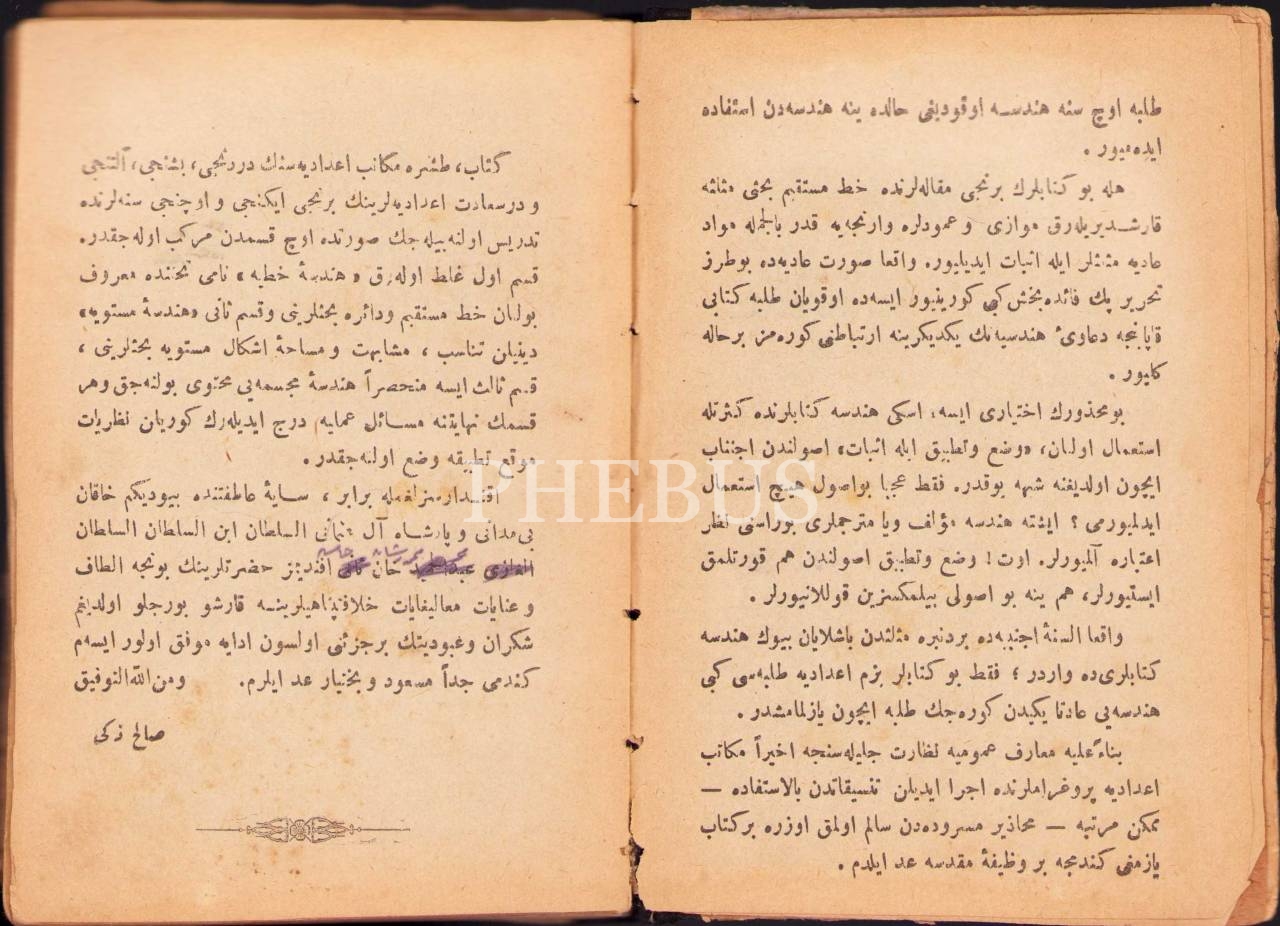 طلبه اوچ سنه هندسه اوقودیغی حالده ینه هندسه‌دن استفاده
ایده‌میور .
هله بو کتابلرك برنجی مقاله‌لرنده خط مستقیم بحثی مثلثه
قارشدیریله‌رق موازی و عمودلره وارنجه‌یه قدر بالجمله مواد
عادیه مثلثلر ایله اثبات ایدیلیور. واقعا صورت عادیه‌ده بوطرز
تحریر پك فائده‌بخش کبی کورینیور ایسه‌ده اوقویان طلبه کتابی
قاپاینجه دعاوئ هندسیه‌نك یکدیکرینه ارتباطنی کوره‌مز برحاله
کلیور .
بومحذورك اختیاری ایسه، اسکی هندسه کتابلرنده کثرتله
استعمال اولنان، «وضع وتطبیق ایله اثبات» اصولندن اجتناب
ایچون اولدیغنه شبهه یوقدر. فقط عجبا بواصول هیچ استعمال
ایدلمیورمی ؟ ایشته هندسه مؤلف ویا مترجملری بوراسنی نظر
اعتباره آلمیورلر. اوت ! وضع وتطبیق اصولندن هم قورتلمق
ایستیورلر، هم ینه بو اصولی بیلمکسزین قوللانیورلر .
واقعا السنۀ اجنبیه‌ده بردنبره مثلثدن باشلایان بیوك هندسه
کتابلری‌ده واردر ؛ فقط بو کتابلر بزم اعدادیه طلبه‌سی کبی
هندسه‌یی عادتا یکیدن کوره‌جك طلبه ایچون یازلمامشدر .
بناءً علیه معارف عمومیه نظارت جلیله‌سنجه اخیراً مکاتب
اعدادیه پروغراملرنده اجرا ایدیلن تنسیقاتدن بالاستفاده —
ممکن مرتبه — محاذیر مسروده‌دن سالم اولمق اوزره برکتاب
یازمغی کندمجه بر وظیفۀ مقدسه عد ایلدم .
کتاب، طشره مکاتب اعدادیه‌سنك دردنجی، بشنجی، آلتنجی
و درسعادت اعدادیه‌لرینك برنجی ایکنجی و اوچنجی سنه‌لرنده
تدریس اولنه‌بیله‌جك صورتده اوچ قسمدن مرکب اوله‌جقدر.
قسم اول غلط اوله‌رق «هندسۀ خطیه» نامی تحتنده معروف
بولنان خط مستقیم ودائره بحثلرینی وقسم ثانی «هندسۀ مستویه»
دینیلن تناسب ، مشابهت و مساحۀ اشکال مستویه بحثلرینی ،
قسم ثالث ایسه منحصراً هندسۀ مجسمه‌یی محتوی بولنه‌جق وهر
قسمك نهایتنه مسائل عملیه درج ایدیله‌رك کوریلن نظریات
موقع تطبیقه وضع اولنه‌جقدر .
اقتدارسزلغمله برابر ، سایۀ عاطفتنده بیودیکم خاقان
بی‌مدانی و پادشاه آل عثمانی السلطان ابن السلطان السلطان
الغازی عبدالحمید خان ثانی افندیمز حضرتلرینك بونجه الطاف
و عنایات معالیغایات خلافتپناهیلرینه قارشو بورجلو اولدیغم
شکران وعبودیتك برجزئنی اولسون ادایه موفق اولور ایسه‌م
کندمی جداً مسعود و بختیار عد ایلرم. ومن الله التوفیق
صالح زکی
PHEBUS